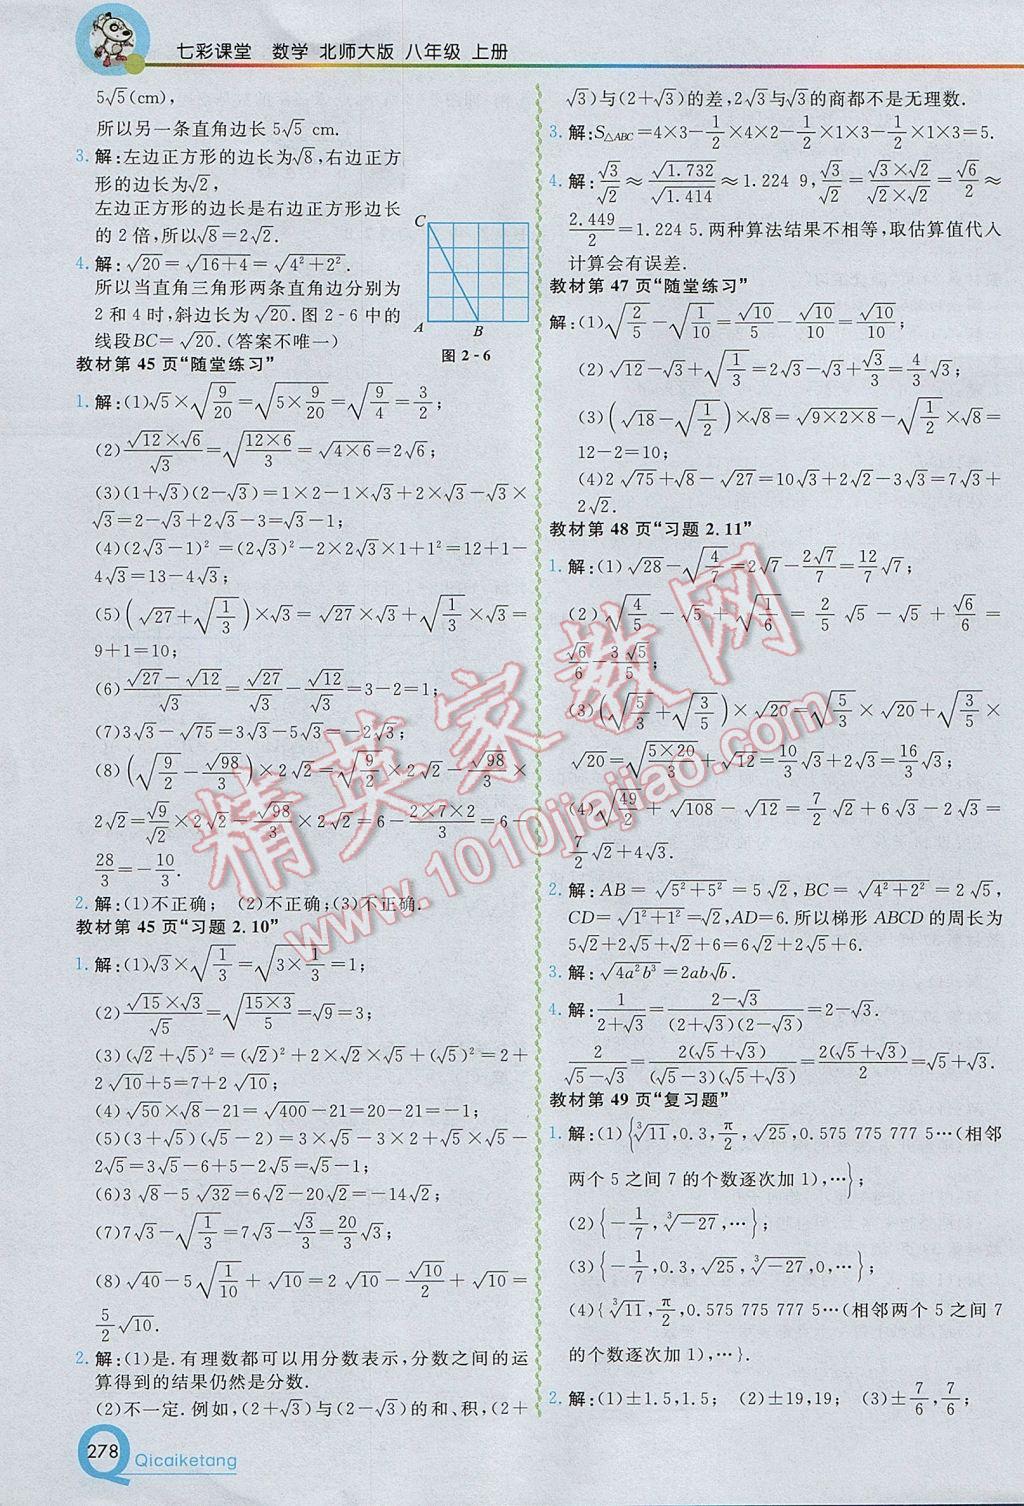 七彩课堂 数学 北师大版 八年级 上册
5√5(cm),
所以另一条直角边长5√5 cm.
3. 解:左边正方形的边长为√8,右边正方
形的边长为√2,
左边正方形的边长是右边正方形边长
的2倍,所以√8=2√2.
4. 解:√20=√(16+4)=√(4²+2²).
所以当直角三角形两条直角边分别为
2和4时,斜边长为√20.图2-6中的
线段BC=√20.(答案不唯一)
C
A
B
图2-6
教材第45页“随堂练习”
1. 解:(1)√5×√(9/20)=√(5×9/20)=√(9/4)=3/2;
(2)(√12×√6)/√3=√((12×6)/3)=√(4×6)=2√6;
(3)(1+√3)(2-√3)=1×2-1×√3+2×√3-√3×
√3=2-√3+2√3-3=√3-1;
(4)(2√3-1)²=(2√3)²-2×2√3×1+1²=12+1-
4√3=13-4√3;
(5)(√27+√(1/3))×√3=√27×√3+√(1/3)×√3=
9+1=10;
(6)(√27-√12)/√3=√27/√3-√12/√3=3-2=1;
(7)3√3-√75=3√3-5√3=-2√3;
(8)(√(9/2)-√98/3)×2√2=√(9/2)×2√2-√98/3×
2√2=√9/√2×2√2-√98/3×2√2=6-(2×7×2)/3=6-
28/3=-10/3.
2. 解:(1)不正确; (2)不正确;(3)不正确.
教材第45页“习题2.10”
1. 解:(1)√3×√(1/3)=√(3×1/3)=1;
(2)(√15×√3)/√5=√((15×3)/5)=√9=3;
(3)(√2+√5)²=(√2)²+2×√2×√5+(√5)²=2+
2√10+5=7+2√10;
(4)√50×√8-21=√400-21=20-21=-1;
(5)(3+√5)(√5-2)=3×√5-3×2+√5×√5-
2√5=3√5-6+5-2√5=√5-1;
(6)3√8-5√32=6√2-20√2=-14√2;
(7)7√3-√(1/3)=7√3-√3/3=20/3√3;
(8)√40-5√(1/10)+√10=2√10-√10/2+√10=
5/2√10.
2. 解:(1)是.有理数都可以用分数表示,分数之间的运
算得到的结果仍然是分数.
(2)不一定.例如,(2+√3)与(2-√3)的和、积,(2+
√3)与(2+√3)的差,2√3与√3的商都不是无理数.
3. 解:S△ABC=4×3-1/2×4×2-1/2×1×3-1/2×1×3=5.
4. 解:√3/√2≈√1.732/√1.414≈1.224 9,√3/√2=(√3×√2)/(√2×√2)=√6/2≈
2.449/2=1.224 5.两种算法结果不相等,取估算值代入
计算会有误差.
教材第47页“随堂练习”
解:(1)√(2/5)-√(1/10)=√10/5-√10/10=√10/10;
(2)√12-√3+√(1/3)=2√3-√3+√3/3=4/3√3;
(3)(√18-√(1/2))×√8=√(9×2×8)-√(1/2)×√8=
12-2=10;
(4)2√75+√8-√27=10√3+2√2-3√3=7√3+
2√2.
教材第48页“习题2.11”
1. 解:(1)√28-√(4/7)=2√7-2√7/7=12/7√7;
(2)√(4/5)-√5+√(1/6)=2/5√5-√5+√6/6=
√6/6-3√5/5;
(3)(√(5/3)+√(3/5))×√20=√(5/3)×√20+√(3/5)×
√20=√((5×20)/3)+√12=10/3√3+2√3=16/3√3;
(4)√(49/2)+√108-√12=7/2√2+6√3-2√3=
7/2√2+4√3.
2. 解:AB=√(5²+5²)=5√2,BC=√(4²+2²)=2√5,
CD=√(1²+1²)=√2,AD=6.所以梯形ABCD的周长为
5√2+2√5+√2+6=6√2+2√5+6.
3. 解:√(4a²b³)=2ab√b.
4. 解:1/(2+√3)=(2-√3)/((2+√3)(2-√3))=2-√3.
2/(√5-√3)=2(√5+√3)/((√5-3)(√5+√3))=2(√5+√3)/2=√5+√3.
教材第49页“复习题”
1. 解:(1){∛11,0.3,π/2,√25,0.575 775 777 5…(相邻
两个5之间7的个数逐次加1),…};
(2){-1/7,∛-27,…};
(3){-1/7,0.3,√25,∛-27,0,…};
(4){∛11,π/2,0.575 775 777 5…(相邻两个5之间7
的个数逐次加1),…}.
2. 解:(1)±1.5,1.5; (2)±19,19; (3)±7/6,7/6;
278
Qicaiketang
精英家教网
www.1010jiajiao.com